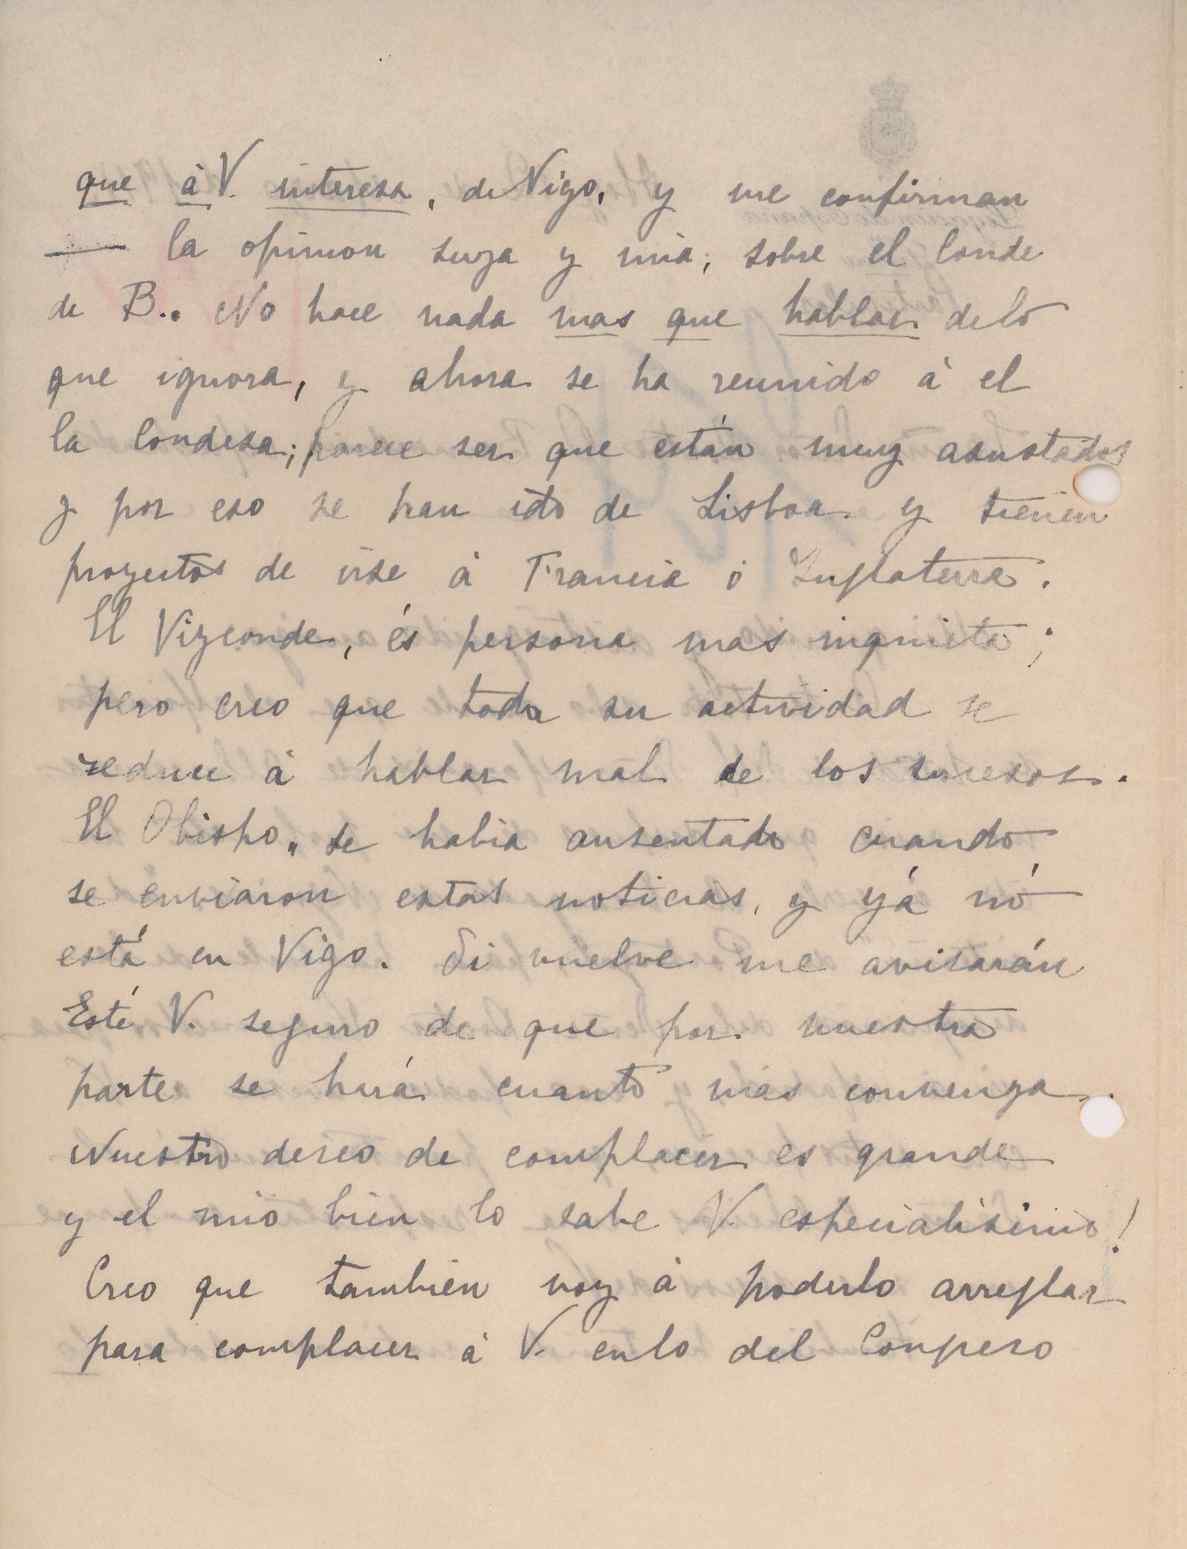 que à V. interesa, de Vigo, y me confirman
la opinion suya y mia, sobre el Conde
de B.. No hace nada mas que hablar de lo
que ignora, y ahora se ha reunido à el
la Condesa; parece ser que están muy asustados
y por eso se han ido de Lisboa y tienen
proyectos de irse à Francia ò Inglaterra.
El Vizconde, és persona mas inquieta;
pero creo que toda su actividad se
reduce à hablar mal de los sucesos.
El Obispo, se habia ausentado cuando
se enviaron estas noticias, y yá nó
está en Vigo. Si vuelve me avisarán
Esté V. seguro de que por nuestra
parte se hará cuanto mas convenga.
Nuestro deseo de complacer es grande
y el mio bien lo sabe V. especialisimo!
Creo que tambien voy à poderlo arreglar
para complacer à V. en lo del Conpero